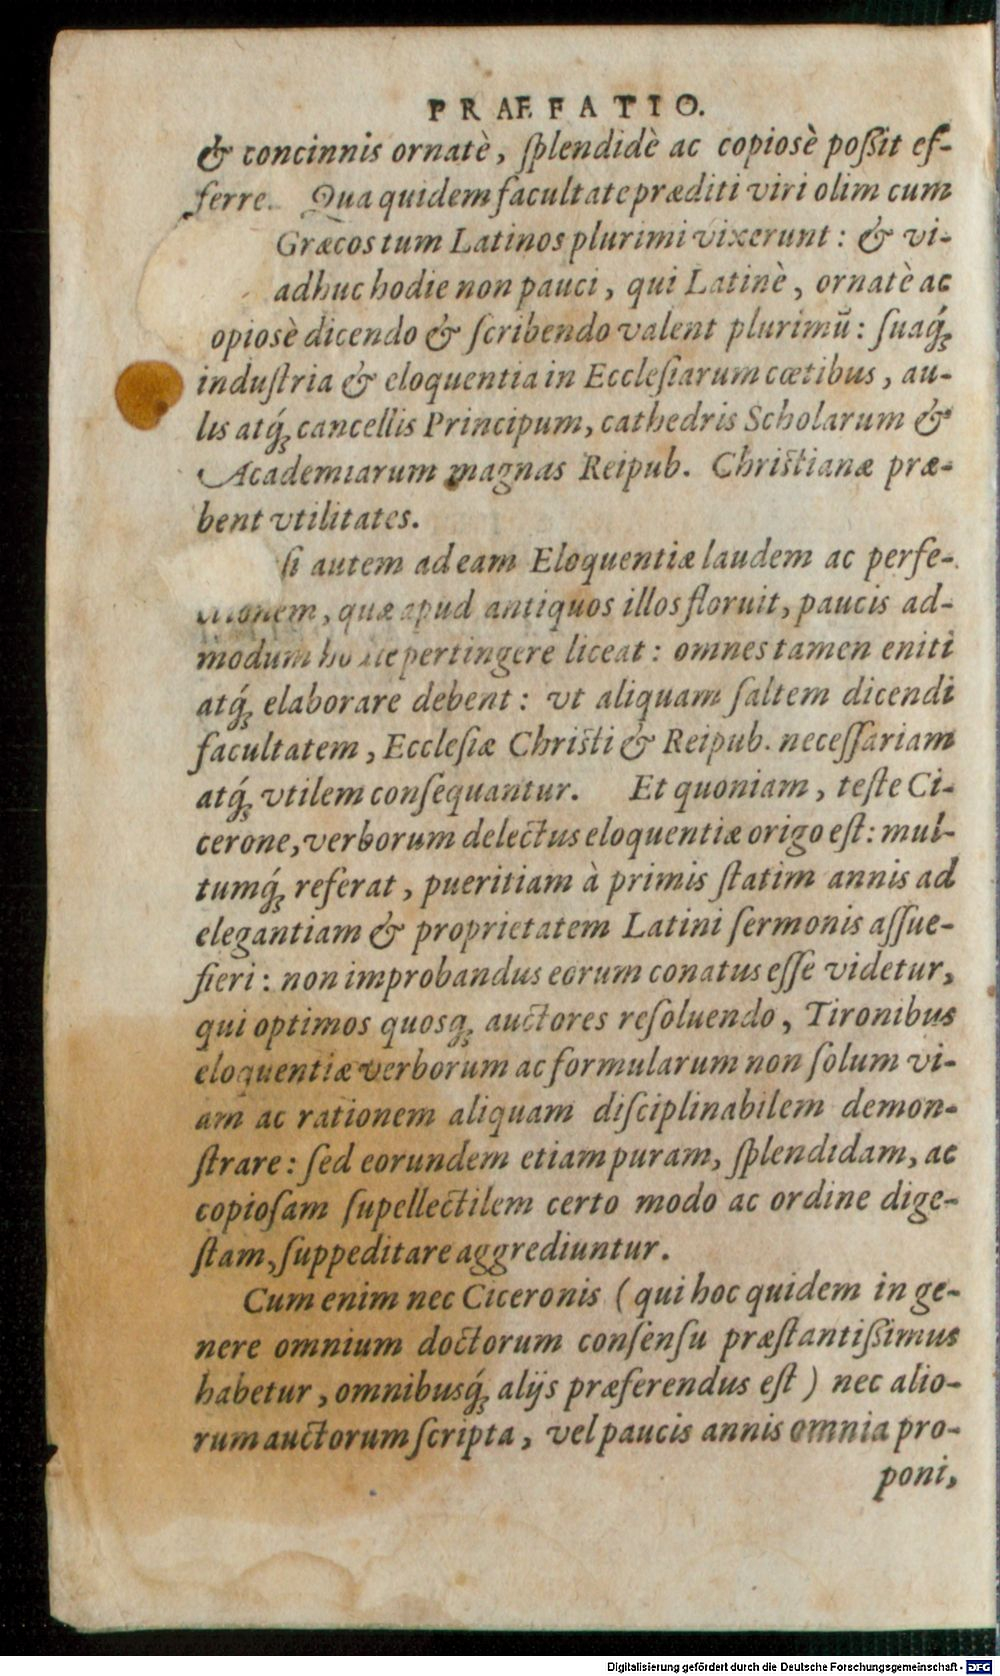 PRAEFATIO.
& concinnis ornatè, ſplendidè ac copiosè poßit ef-
ferre. Qua quidem facultate præditi viri olim cum
Græcos tum Latinos plurimi vixerunt: & vi-
adhuc hodie non pauci, qui Latinè, ornatè ac
opiosè dicendo & ſcribendo valent plurimũ: ſuaq́;
induſtria & eloquentia in Eccleſiarum cœtibus, au-
lis atq́; cancellis Principum, cathedris Scholarum &
Academiarum magnas Reipub. Chriſtianæ præ-
bent vtilitates.
ſi autem ad eam Eloquentiæ laudem ac perfe-
ctionem, quæ apud antiquos illos floruit, paucis ad-
modum hodie pertingere liceat: omnes tamen eniti
atq́; elaborare debent: vt aliquam ſaltem dicendi
facultatem, Eccleſiæ Chriſti & Reipub. neceſſariam
atq́; vtilem conſequantur. Et quoniam, teſte Ci-
cerone, verborum delectus eloquentiæ origo eſt: mul-
tumq́; referat, pueritiam à primis ſtatim annis ad
elegantiam & proprietatem Latini ſermonis aſſue-
fieri: non improbandus eorum conatus eſſe videtur,
qui optimos quosq; auctores reſoluendo, Tironibus
eloquentiæ verborum ac formularum non ſolum vi-
am ac rationem aliquam diſciplinabilem demon-
ſtrare: ſed eorundem etiam puram, ſplendidam, ac
copioſam ſupellectilem certo modo ac ordine dige-
ſtam, ſuppeditare aggrediuntur.
Cum enim nec Ciceronis (qui hoc quidem in ge-
nere omnium doctorum conſenſu præſtantißimus
habetur, omnibusq́; alijs præferendus eſt) nec alio-
rum auctorum ſcripta, vel paucis annis omnia pro-
poni,
Digitalisierung gefördert durch die Deutsche Forschungsgemeinschaft - DFG